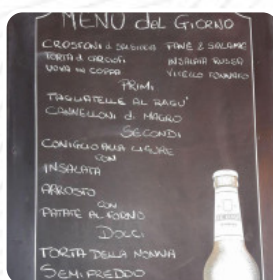 MENU del GIORNO
CROSTONI d SALSICCIA PANE & SALAME
TORTA d CARCIOFI INSALATA RUSSA
UOVA IN COPPA VITELLO TONNATO
PRIMI
TAGLIATELLE AL RAGU'
CANNELLONI di MAGRO
SECONDI
CONIGLIO ALLA LIGURE
CON
INSALATA
ARROSTO
CON
PATATE AL FORNO
DOLCI
TORTA DELLA NONNA
SEMIFREDDO